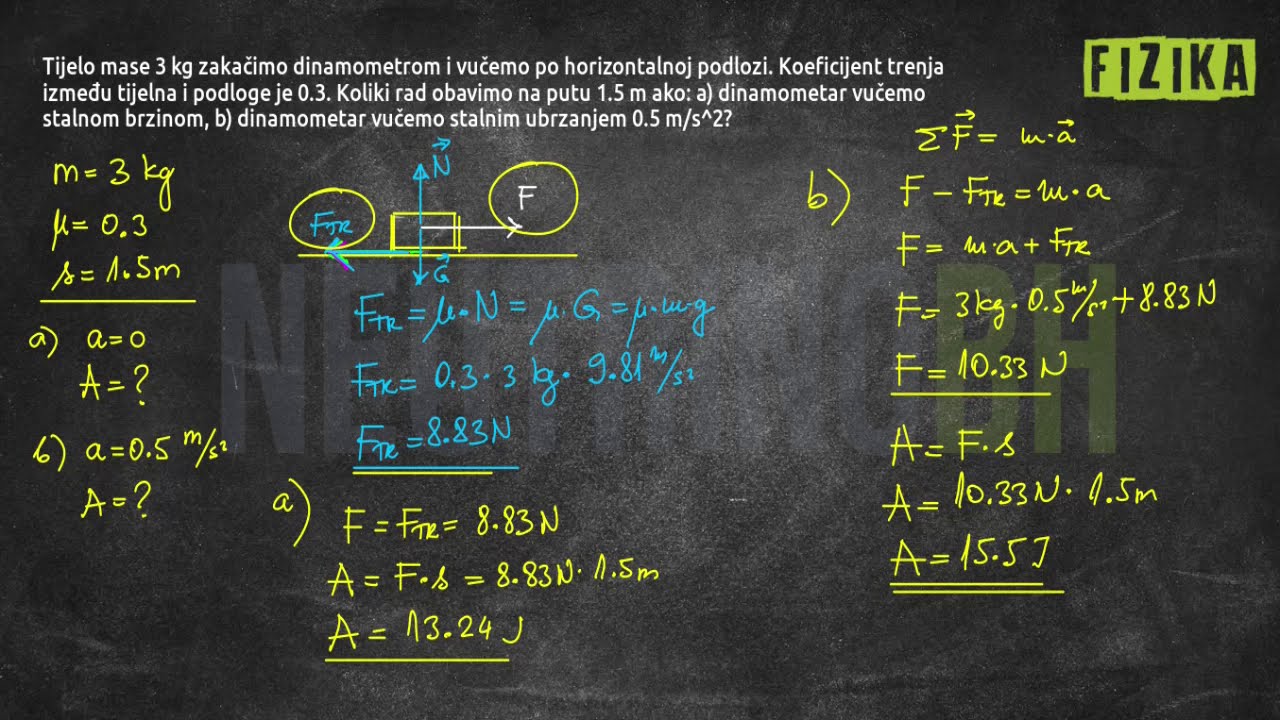 Tijelo mase 3 kg zakačimo dinamometrom i vučemo po horizontalnoj podlozi. Koeficijent trenja
između tijelna i podloge je 0.3. Koliki rad obavimo na putu 1.5 m ako: a) dinamometar vučemo
stalnom brzinom, b) dinamometar vučemo stalnim ubrzanjem 0.5 m/s^2?
FIZIKA
m = 3 kg
μ = 0.3
s = 1.5m
a) a=0
A = ?
b) a=0.5 m/s²
A = ?
N
F
FTR
G
FTR = μ·N = μ·G = μ·m·g
FTR = 0.3·3 kg·9.81 m/s²
FTR = 8.83N
a)
F = FTR = 8.83N
A = F·s = 8.83N·1.5m
A = 13.24 J
b)
ΣF = m·a
F − FTR = m·a
F = m·a + FTR
F = 3kg·0.5 m/s² + 8.83N
F = 10.33 N
A = F·s
A = 10.33N·1.5m
A = 15.5J